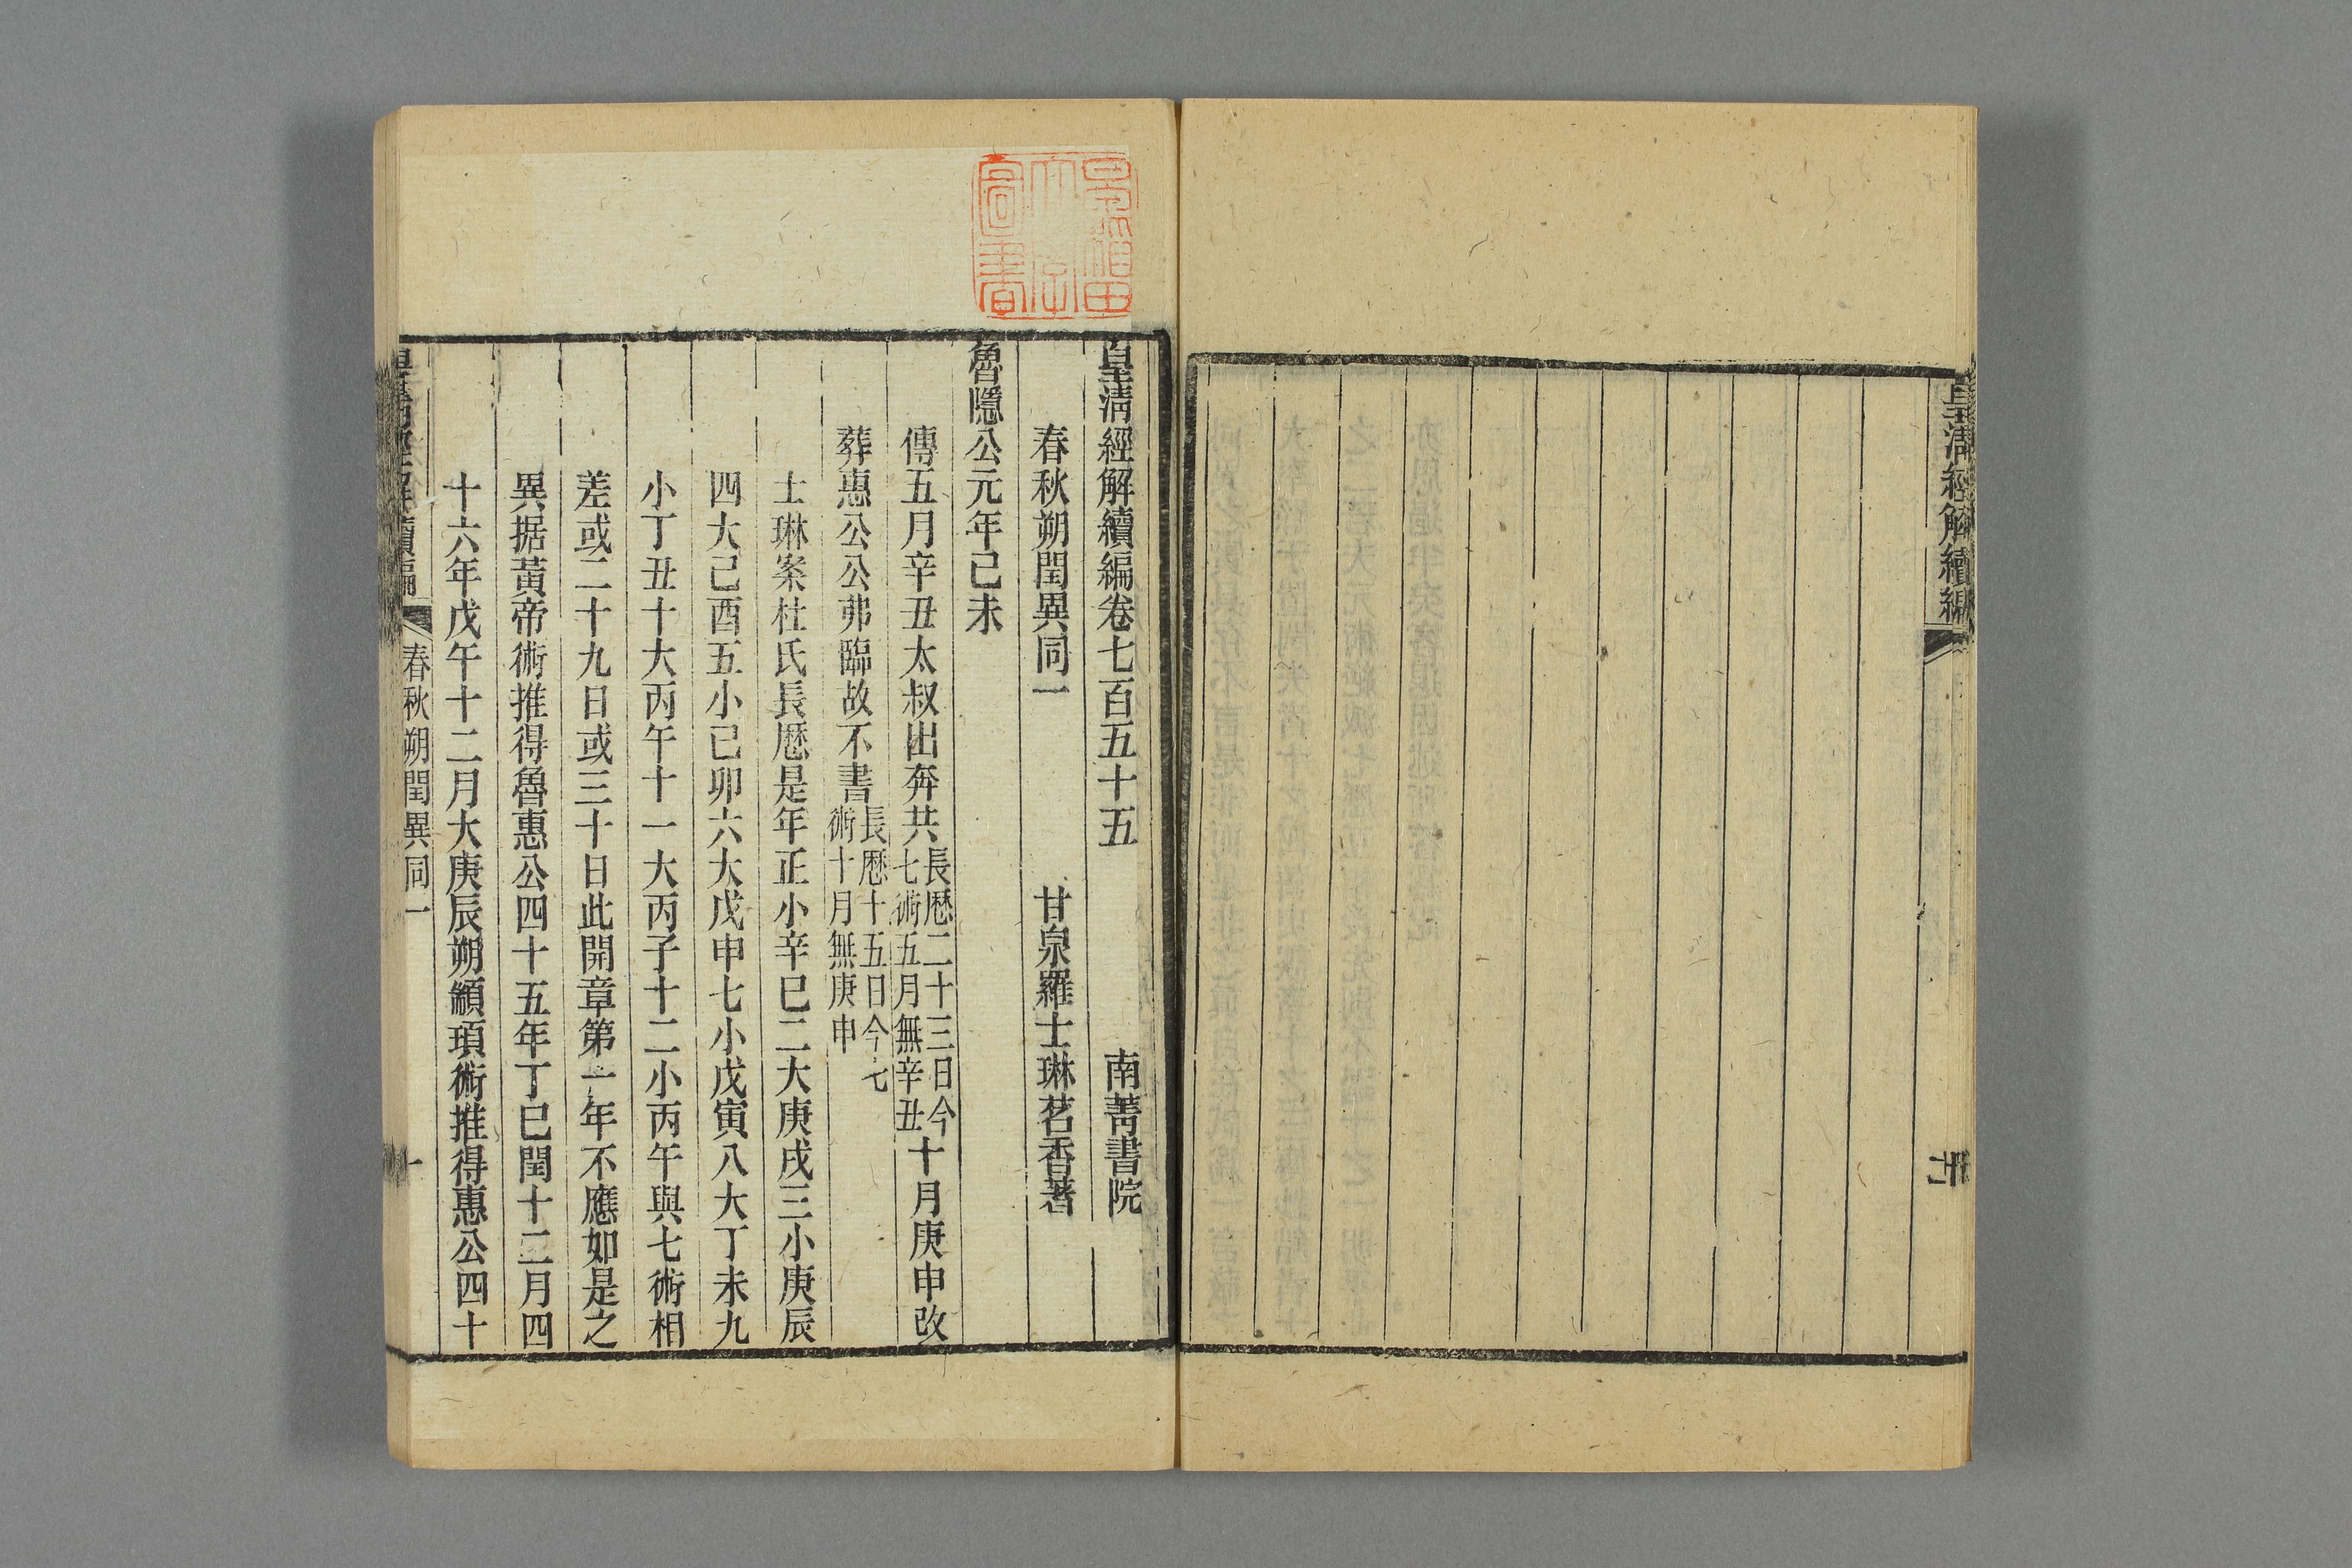 皇清經解續編
皇清經解續編卷七百五十五
南菁書院
春秋朔閏異同一
甘泉羅士琳茗香著
魯隱公元年己未
傳五月辛丑太叔出奔共長厯二十三日今七術五月無辛丑十月庚申改
葬惠公公弗臨故不書長厯十五日今七術十月無庚申
士琳案杜氏長厯是年正小辛巳二大庚戌三小庚辰
四大己酉五小己卯六大戊申七小戊寅八大丁未九
小丁丑十大丙午十一大丙子十二小丙午與七術相
差或二十九日或三十日此開章第一年不應如是之
異据黃帝術推得魯惠公四十五年丁巳閏十二月四
十六年戊午十二月大庚辰朔顓頊術推得惠公四十
皇清經解續編
春秋朔閏異同一
一